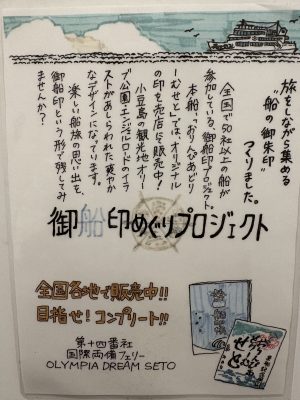 旅をしながら集める
"船の御朱印"
つくりました。
全国で50社以上の船が
参加している、御船印プロジェクト。
本船「おりんぴあどり
ーむせと」では、オリジナル
の印を売店にて販売中！
小豆島の観光地オリー
ブ公園・エンジェルロードのイラ
ストがあしらわれた爽やか
なデザインになっています。
楽しい船旅の思い出を、
御船印という形で残してみ
ませんか？
御船印めぐりプロジェクト
全国各地で販売中!!
目指せ！コンプリート!!
第十四番社
国際両備フェリー
OLYMPIA DREAM SETO